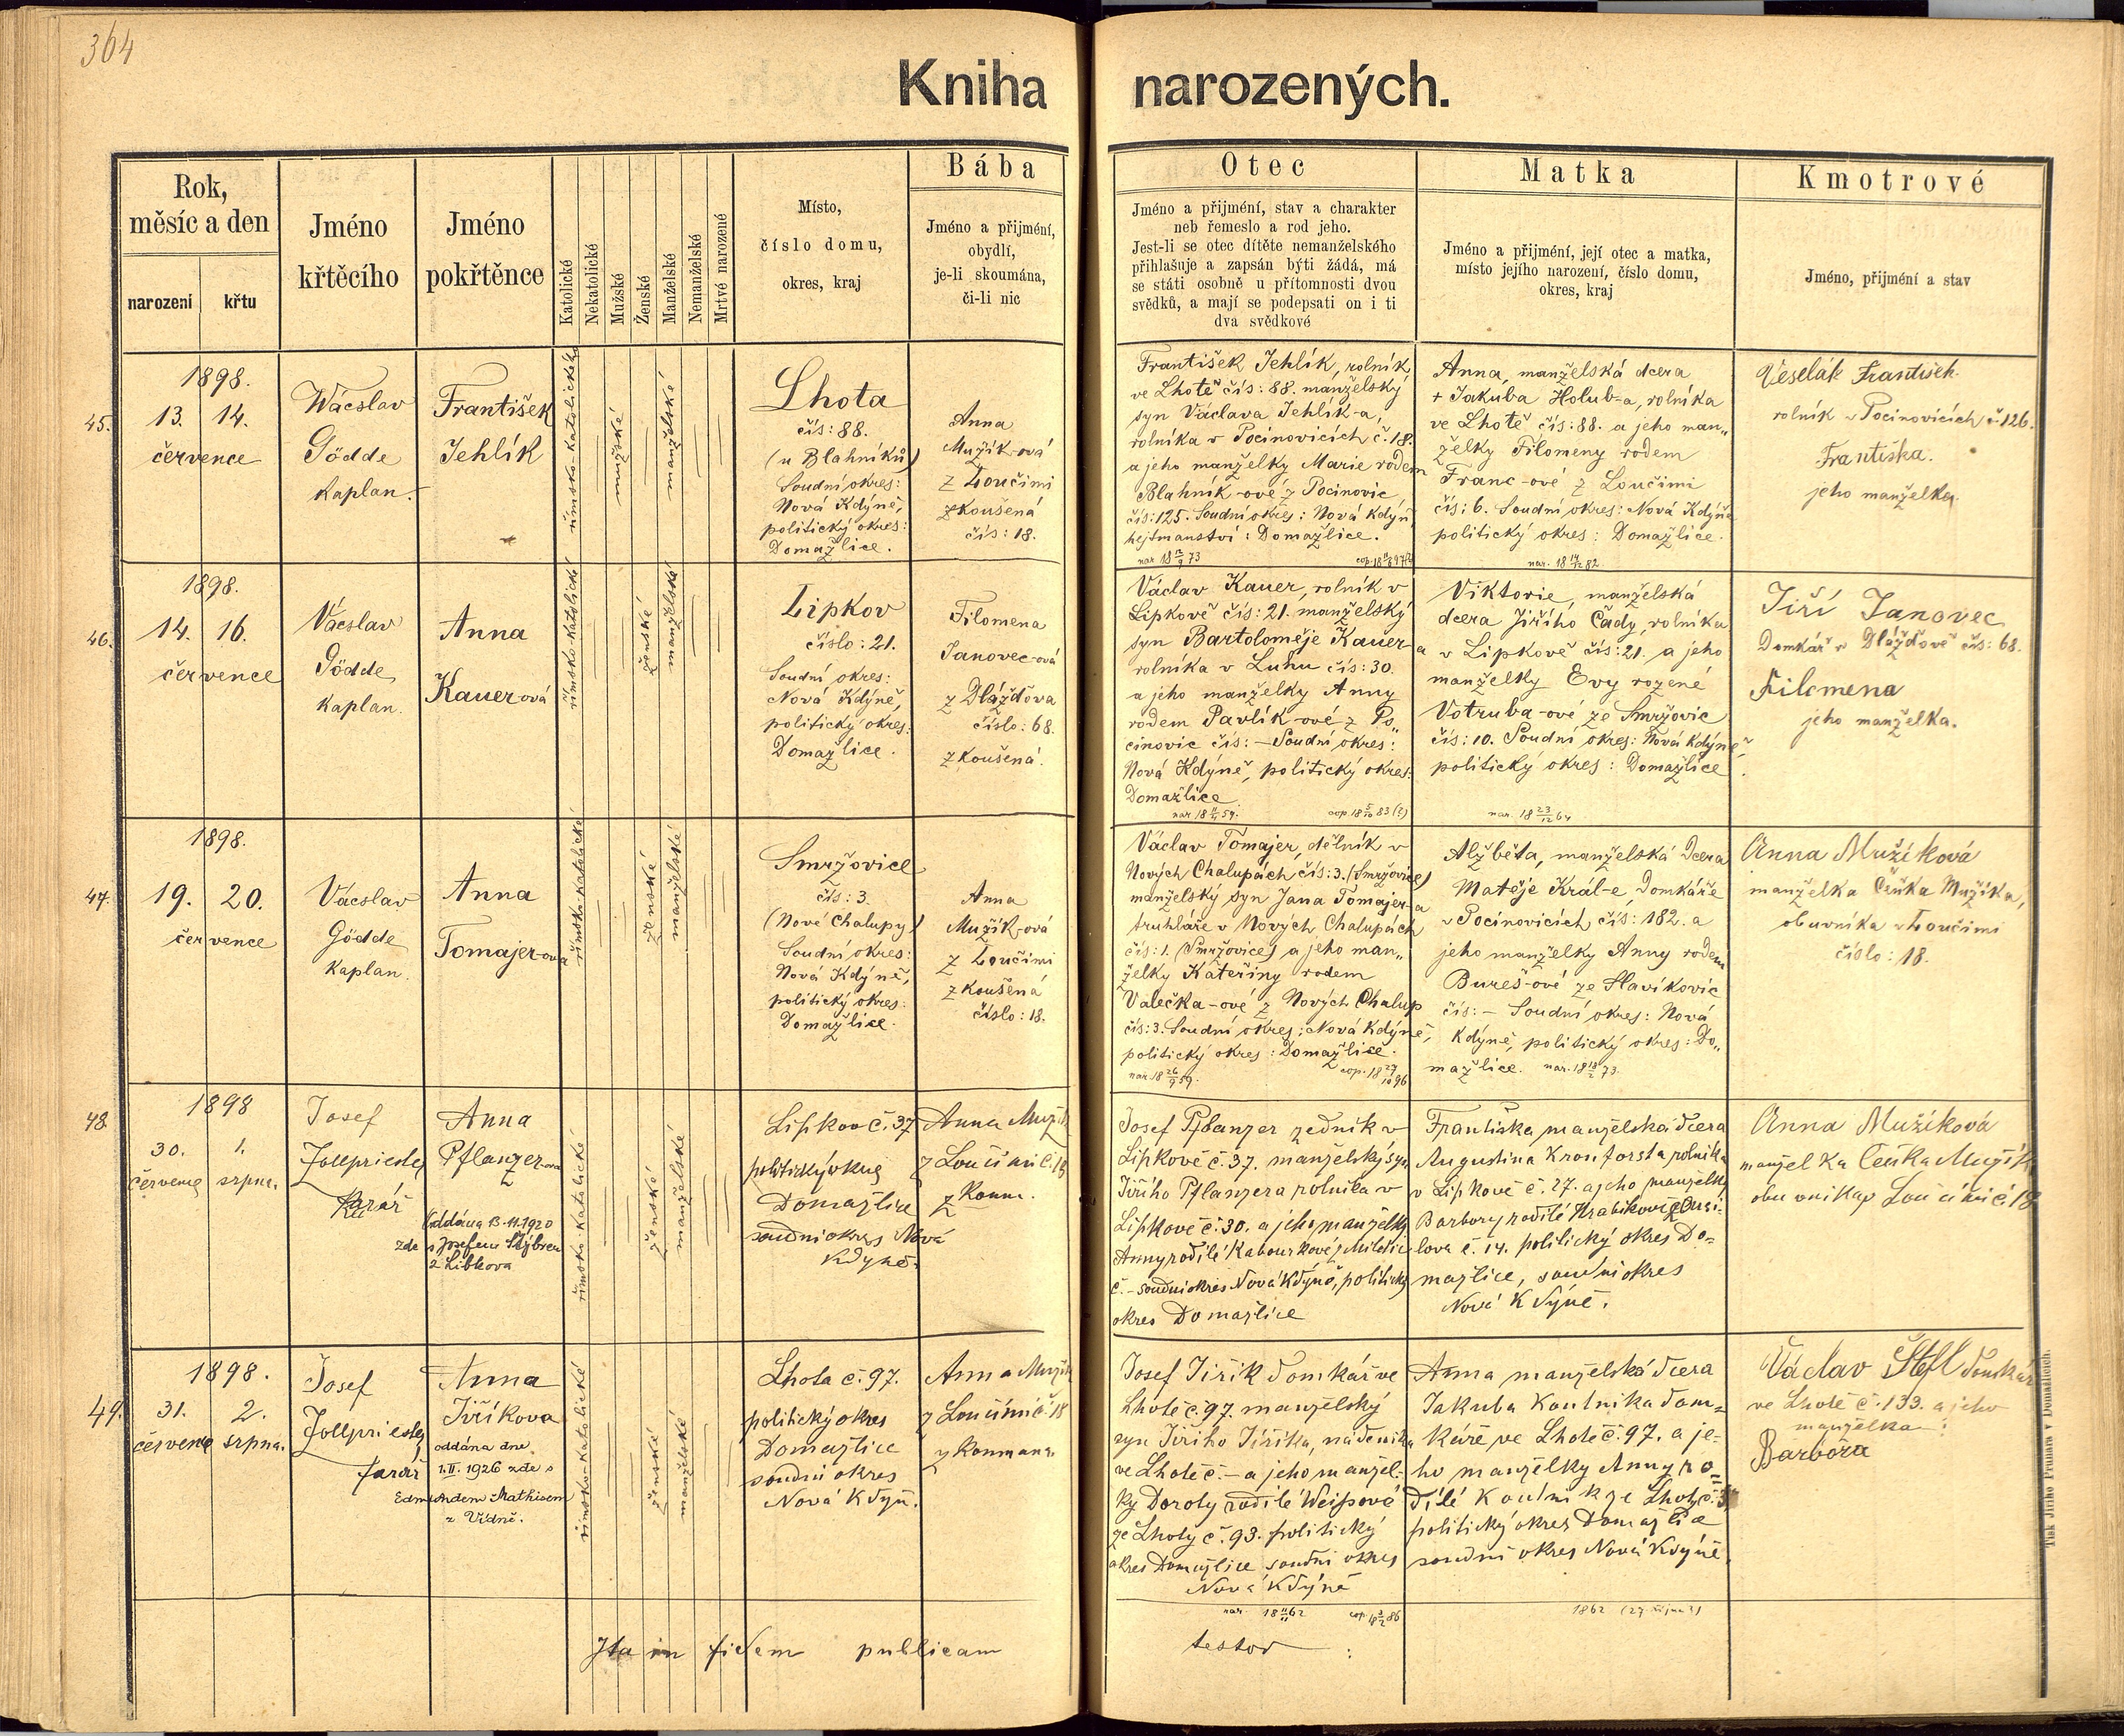 364
Kniha narozených.
Rok,
měsíc a den
narození
křtu
Jméno
křtěcího
Jméno
pokřtěnce
Katolické
Nekatolické
Mužské
Ženské
Manželské
Nemanželské
Mrtvě narozené
Místo,
číslo domu,
okres, kraj
Bába
Jméno a přijmění,
obydlí,
je-li skoumána,
či-li nic
Otec
Jméno a přijmění, stav a charakter
neb řemeslo a rod jeho.
Jest-li se otec dítěte nemanželského
přihlašuje a zapsán býti žádá, má
se státi osobně u přítomnosti dvou
svědků, a mají se podepsati on i ti
dva svědkové
Matka
Jméno a přijmění, její otec a matka,
místo jejího narození, číslo domu,
okres, kraj
Kmotrové
Jméno, přijmění a stav
45.
1898.
13. 14.
července
Wácslav
Gödde
Kaplan.
František
Jehlík
římsko-katolické
mužské
manželské
Lhota
čís: 88.
(u Blahníků)
Soudní okres:
Nová Kdýně,
politický okres:
Domažlice.
Anna
Mužík-ová
z Loučimi
zkoušená
čís: 18.
František Jehlík, rolník
ve Lhotě čís: 88. manželský
syn Václava Jehlík-a,
rolníka v Pocinovicích č. 18.
a jeho manželky Marie rodem
Blahník-ové z Pocinovic
čís: 125. Soudní okres: Nová Kdýň,
hejtmanství: Domažlice.
Anna, manželská dcera
+ Jakuba Holub-a, rolníka
ve Lhotě čís: 88. a jeho man„
želky Filomeny rodem
Franc-ové z Loučimi
čís: 6. Soudní okres: Nová Kdýňe
politický okres: Domažlice.
Veselák František.
rolník v Pocinovicích č. 126.
Františka.
jeho manželka.
46.
1898.
14. 16.
července
Vácslav
Gödde
Kaplan.
Anna
Kauerová
římsko-katolické
ženské
manželské
Lipkov
číslo: 21.
Soudní okres:
Nová Kdýně,
politický okres:
Domažlice.
Filomena
Janovec-ová
z Dlážďova
číslo: 68.
zkoušená.
Václav Kauer, rolník v
Lipkově čís: 21. manželský
syn Bartoloměje Kauer-a
rolníka v Luhu čís: 30.
a jeho manželky Anny
rodem Pavlík-ové z Po„
cinovic čís: — Soudní okres:
Nová Kdýně, politický okres:
Domažlice.
Viktorie, manželská
dcera Jiřího Čady, rolníka
v Lipkově čís: 21. a jeho
manželky Evy rozené
Votruba-ové ze Smržovic
čís: 10. Soudní okres: Nová Kdýně,
politický okres: Domažlice.
Jiří Janovec
Domkář v Dlážďově čís: 68.
Filomena
jeho manželka.
47.
1898.
19. 20.
července
Vácslav
Gödde
Kaplan.
Anna
Tomajer-ová
římsko-katolické
ženské
manželské
Smržovice
čís: 3.
(Nové Chalupy)
Soudní okres:
Nová Kdýně,
politický okres:
Domažlice.
Anna
Mužík-ová
z Loučimi
zkoušená
číslo: 18.
Václav Tomajer, dělník v
Nových Chalupách čís: 3. (Smržovice)
manželský syn Jana Tomajer-a
truhláře v Nových Chalupách
čís: 1. (Smržovice) a jeho man„
želky Kateřiny rodem
Valečka-ové z Nových Chalup
čís: 3. Soudní okres: Nová Kdýně,
politický okres: Domažlice.
Alžběta, manželská dcera
Matěje Král-e, Domkáře
v Pocinovicích čís: 182. a
jeho manželky Anny rodem
Bureš-ové ze Slavíkovic
čís: — Soudní okres: Nová
Kdýně, politický okres: Do„
mažlice.
Anna Mužíková
manželka Čeňka Mužíka,
obuvníka v Loučimi
číslo: 18.
48.
1898
30. 1.
července srpna.
Josef
Zollpriester
farář
Anna
Pflanzer-ova
Oddána 13.11.1920
zde s Josefem Stýbrem
z Libkova
římsko-katolické
ženské
manželské
Lipkov č. 37
politický okres
Domažlice
soudní okres Nová
Kdyně.
Anna Mužík
z Loučimi č. 18
zkoum.
Josef Pflanzer zedník v
Lipkově č. 37. manželský syn
Jiřího Pflanzera rolníka v
Lipkově č. 30. a jeho manželky
Anny rodilé Kabourkové z Miletic
č. - soudní okres Nová Kdýně, politický
okres Domažlice
Františka manželská dcera
Augustina Kronforsta rolníka
v Lipkově č. 27. a jeho manželky
Barbory rodilé Hrabíkové z Orsi-
lova č. 14. politický okres Do-
mažlice, soudní okres
Nová Kdýně.
Anna Mužíková
manželka Čeňka Mužík
obuvníka v Loučimi č. 18
49.
1898.
31. 2.
července srpna.
Josef
Zollpriester
farář
Anna
Jiříkova
oddána dne
1.II. 1926 zde s
Edmundem Mathisem
z Vídně.
římsko-katolické
ženské
manželské
Lhota č. 97.
politický okres
Domažlice
soudní okres
Nová Kdyň.
Anna Mužík
z Loučimi č. 18
zkoumana.
Josef Jiřík domkář ve
Lhotě č. 97. manželský
syn Jiřího Jiříka, nádeníka
ve Lhotě č. — a jeho manžel-
ky Doroty rodilé Weissové
ze Lhoty č. 93. politický
okres Domažlice soudní okres
Nová Kdýně
Anna manželská dcera
Jakuba Koutníka dom-
káře ve Lhotě č. 97. a je-
ho manželky Anny ro-
dilé Koutník ze Lhoty č.
politický okres Domažlice
soudní okres Nová Kdýně.
Václav Štefl domkář
ve Lhotě č. 133. a jeho
manželka
Barbora
Ita in fidem publicam
testor
Tisk Jiřího Prunara v Domažlicích.